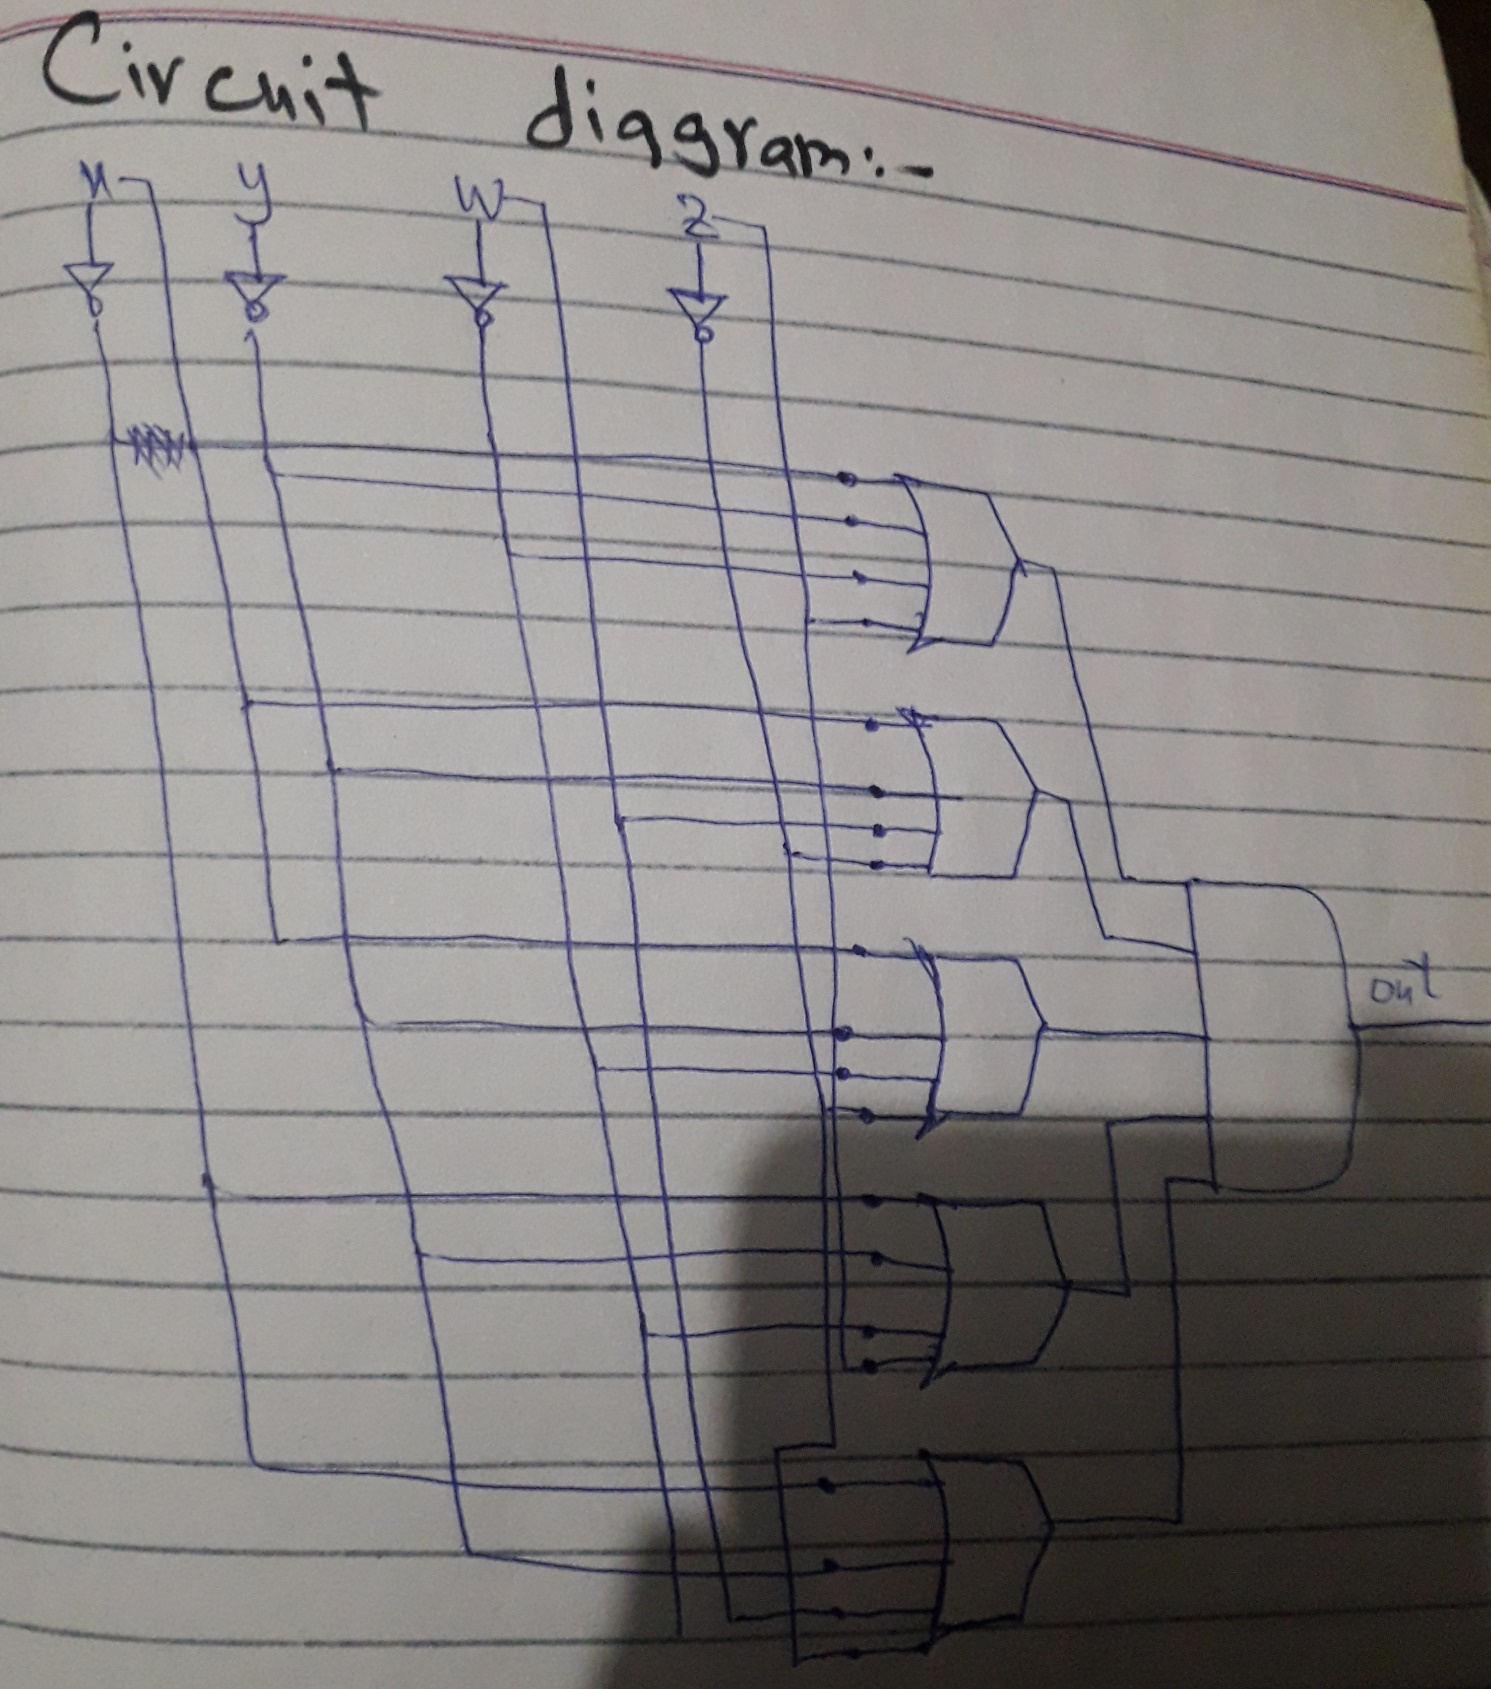 Circuit diagram:-
x y w z
out